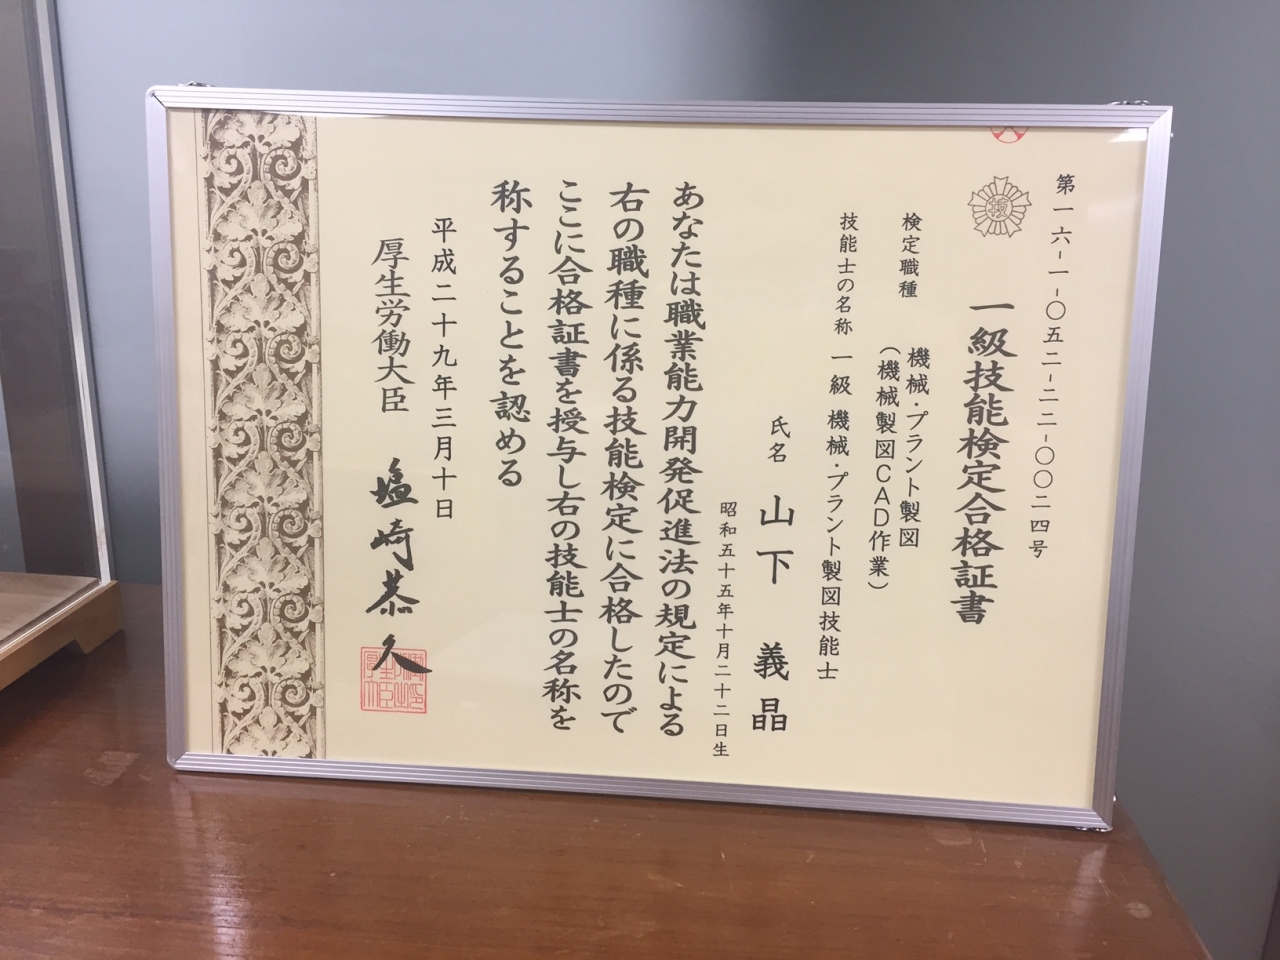 第一六-一-〇五二-二二-〇〇二四号
技
一級技能検定合格証書
検定職種 機械・プラント製図
(機械製図CAD作業)
技能士の名称 一級 機械・プラント製図技能士
氏名 山下 義晶
昭和五十五年十月二十二日生
あなたは職業能力開発促進法の規定による
右の職種に係る技能検定に合格したので
ここに合格証書を授与し右の技能士の名称を
称することを認める
平成二十九年三月十日
厚生労働大臣 塩崎恭久